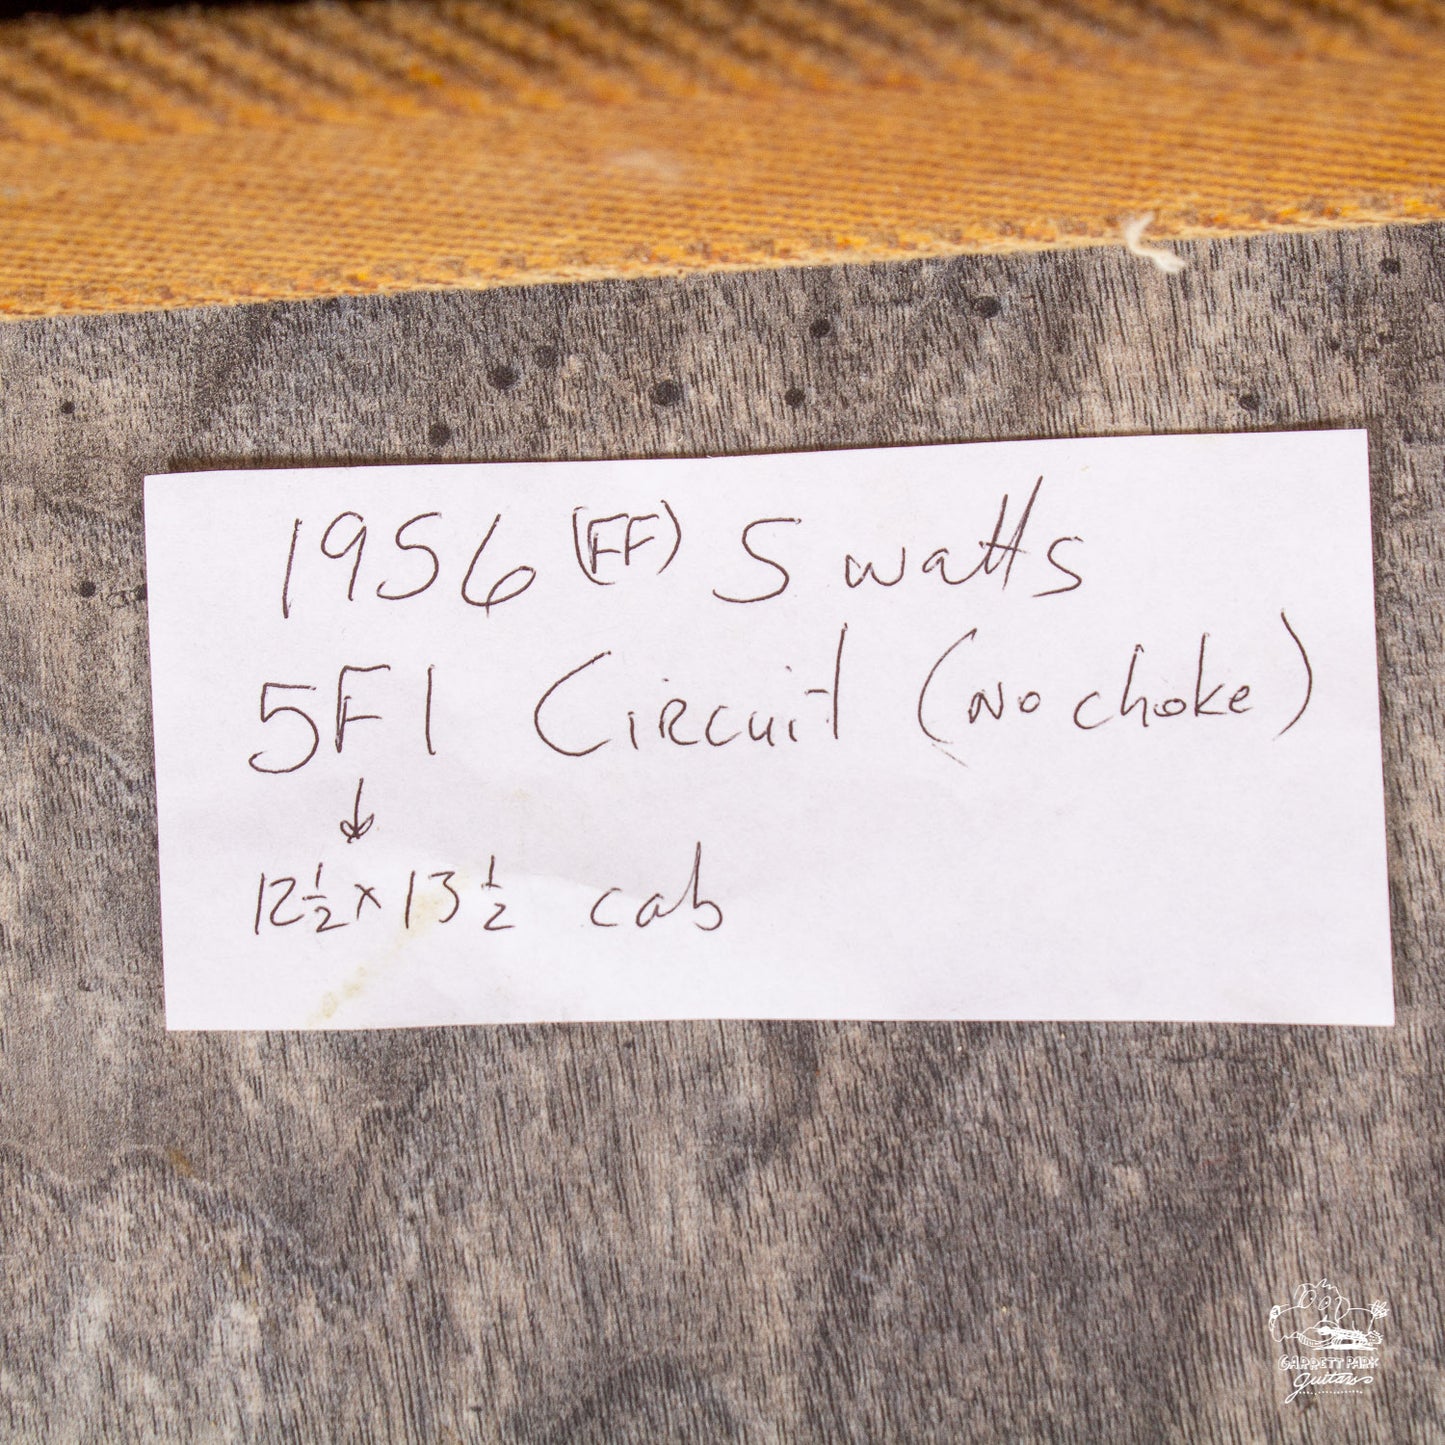 1956 (FF) 5 watts
5F1 Circuit (No choke)
↓
12 1/2 x 13 1/2 cab
GARRETT PARK
guitars